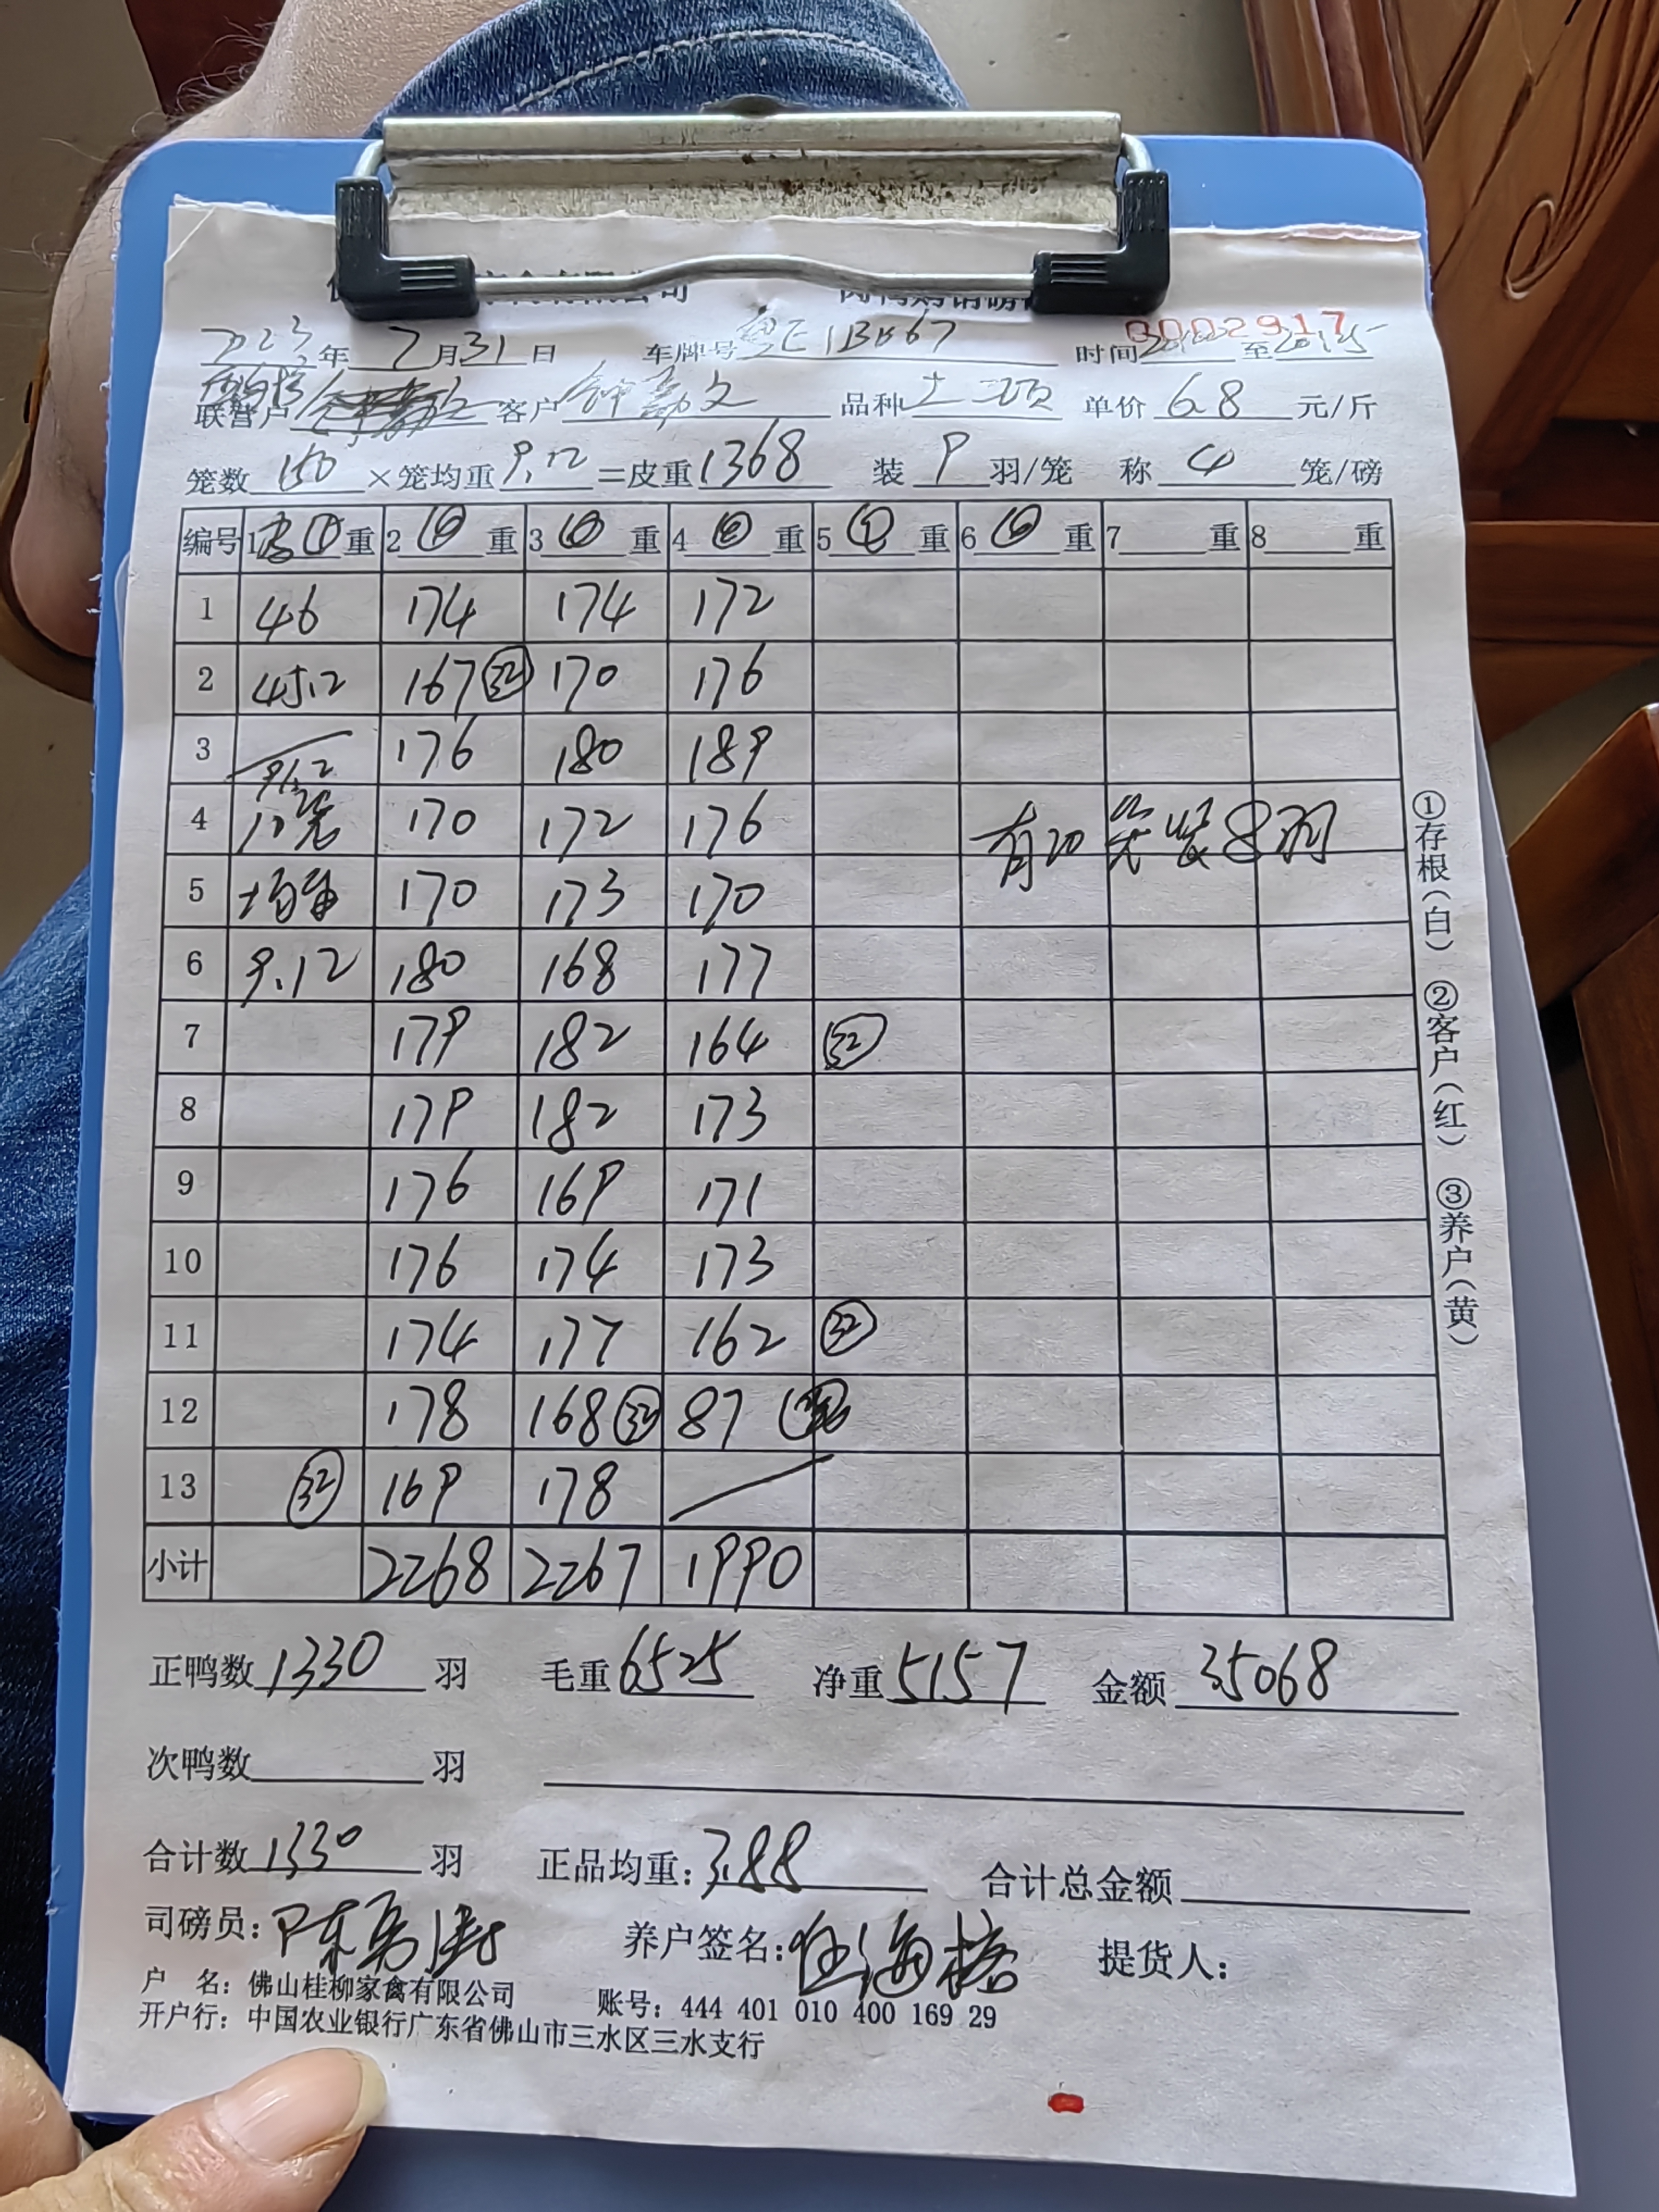 0002917
2023年 7月31日 车牌号粤E1BH67 时间 至2015
联营户 客户 钟 文 品种 土二项 单价 6.8 元/斤
笼数 150 ×笼均重 9.12 =皮重1368 装 9 羽/笼 称 4 笼/磅
编号 1 重 2 重 3 重 4 重 5 重 6 重 7 重 8 重
1 46 174 174 172
2 45.2 167 32 170 176
3 91.2 176 180 189
4 10笼 170 172 176 有20笼装8羽
5 均重 170 173 170
6 9.12 180 168 177
7 179 182 164 32
8 179 182 173
9 176 169 171
10 176 174 173
11 174 177 162 32
12 178 168 32 87
13 32 169 178
小计 2268 2267 1990
正鸭数 1330 羽 毛重 6525 净重 5157 金额 35068
次鸭数 羽
合计数 1330 羽 正品均重: 3.88 合计总金额
司磅员: 陈勇 养户签名: 海 提货人:
户 名: 佛山桂柳家禽有限公司 账号: 444 401 010 400 169 29
开户行: 中国农业银行广东省佛山市三水区三水支行
①存根(白) ②客户(红) ③养户(黄)